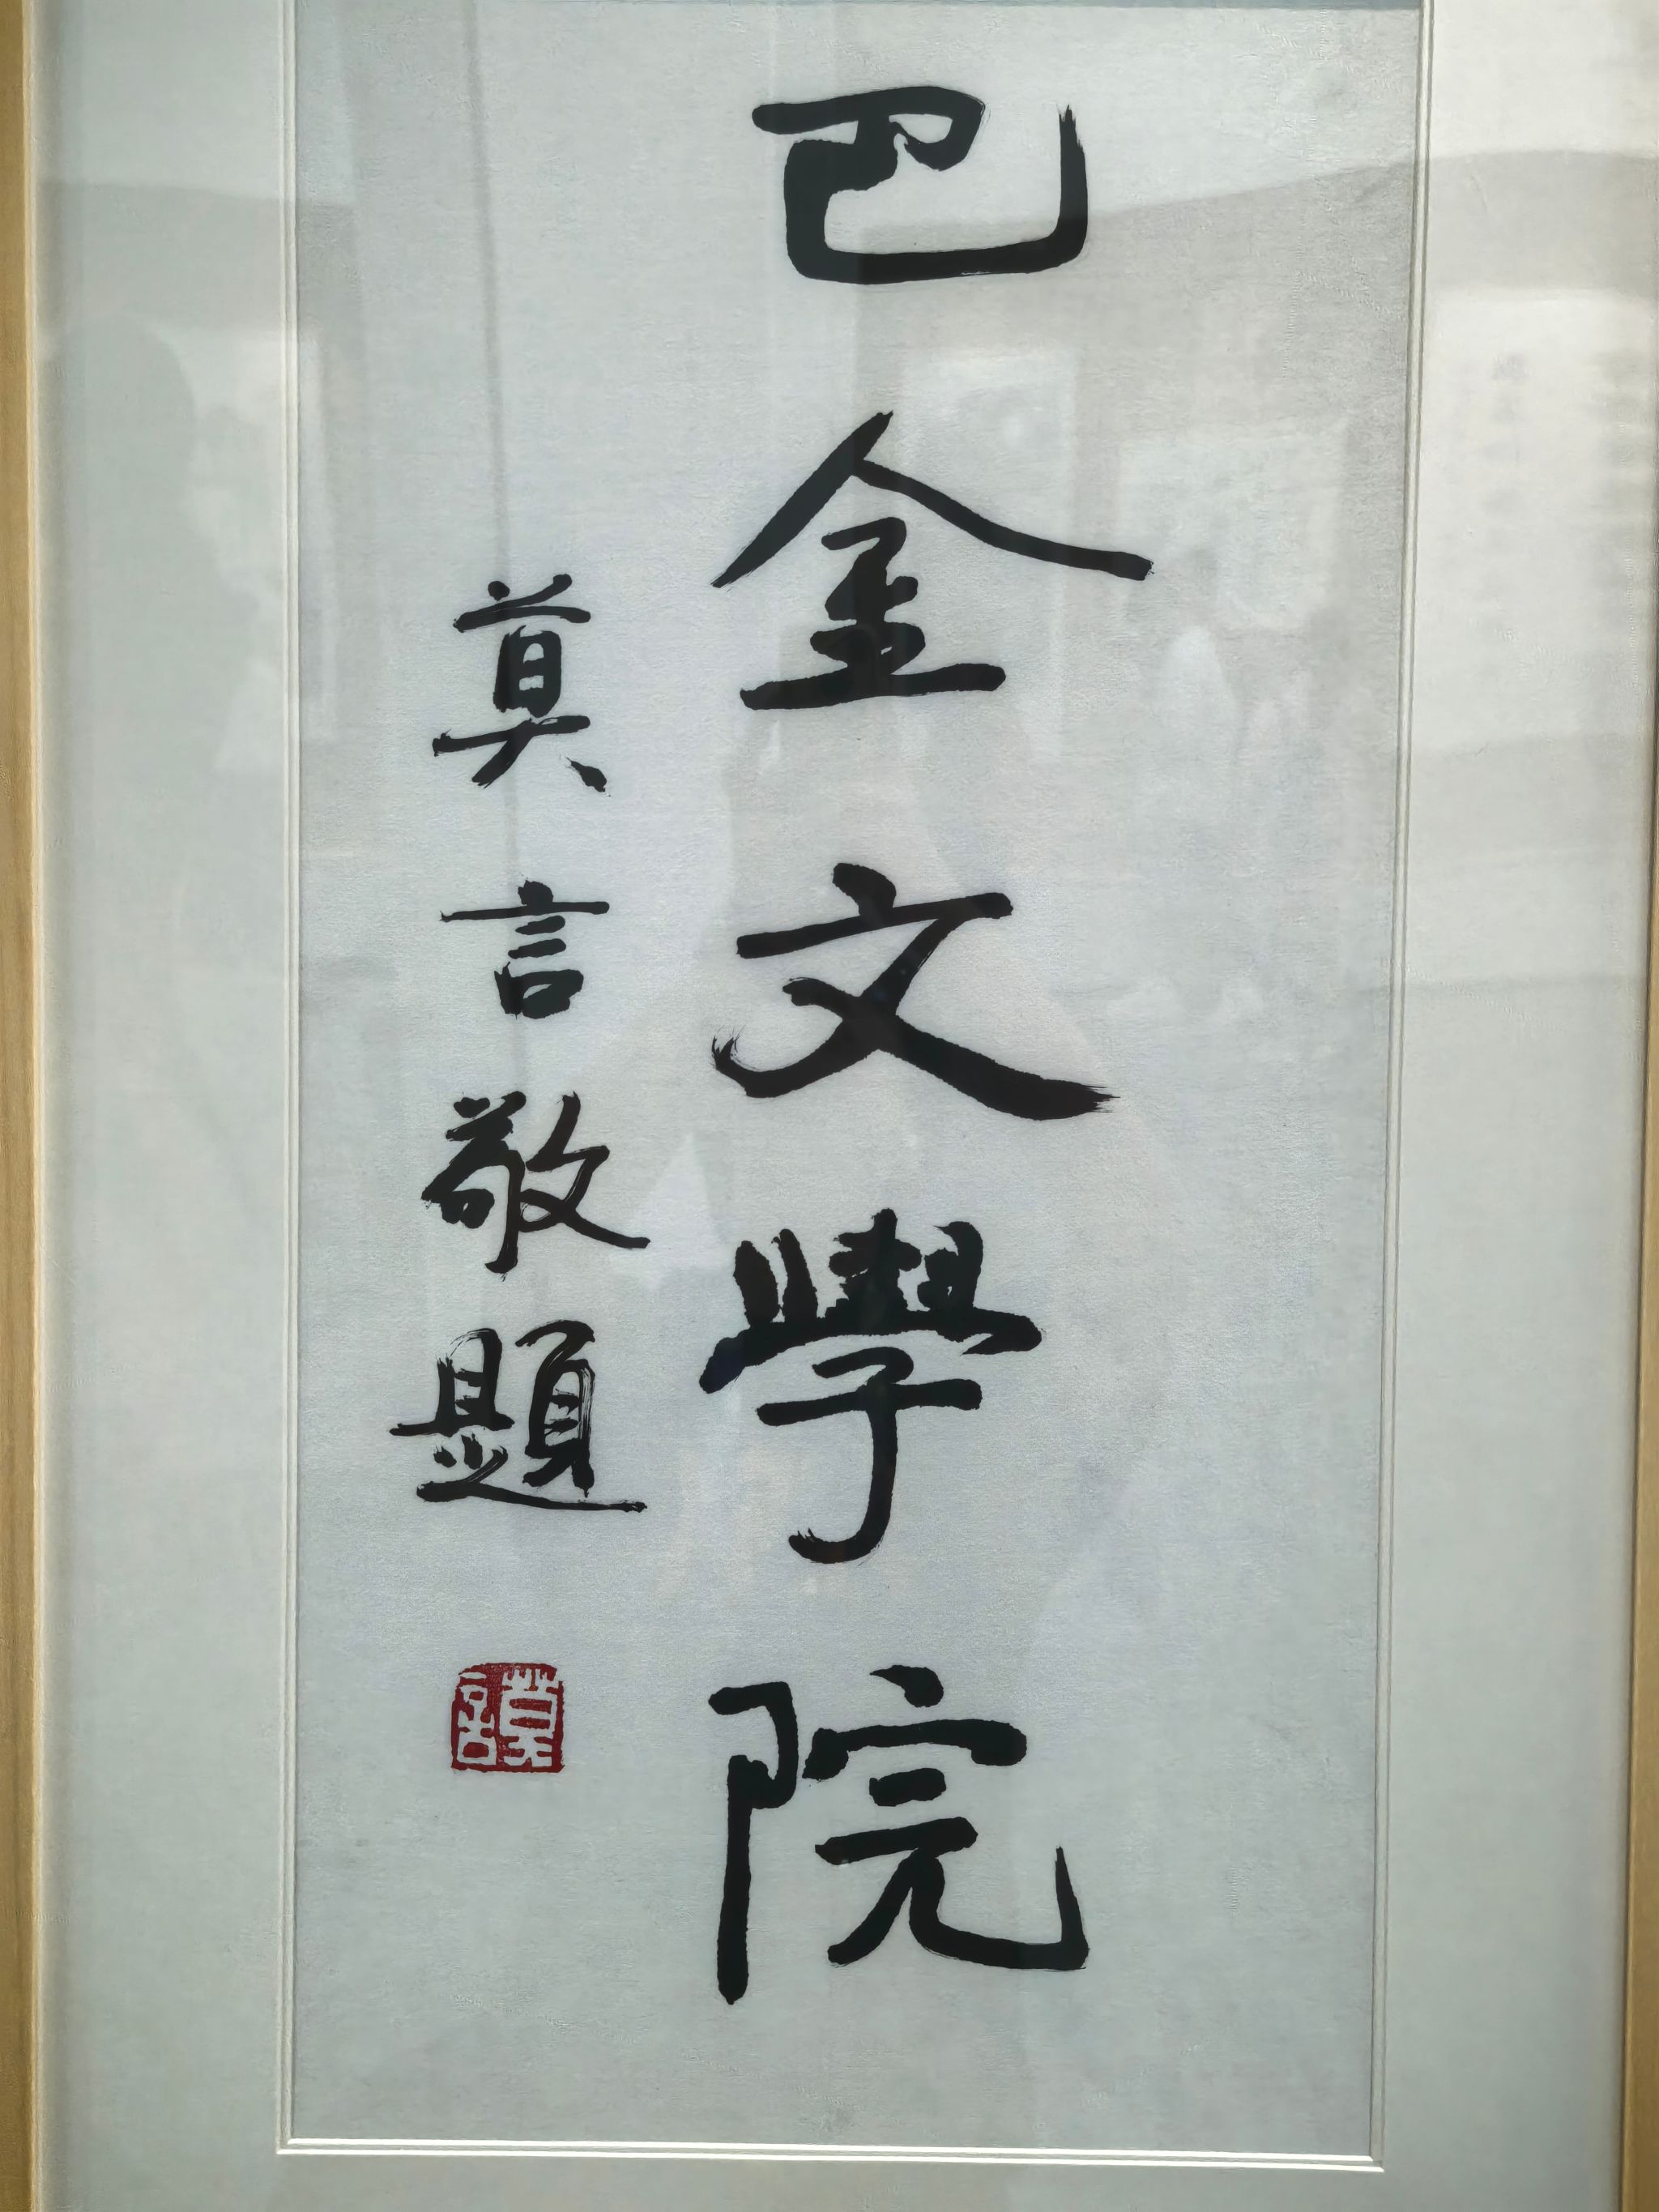 巴金文學院
莫言敬題
莫言